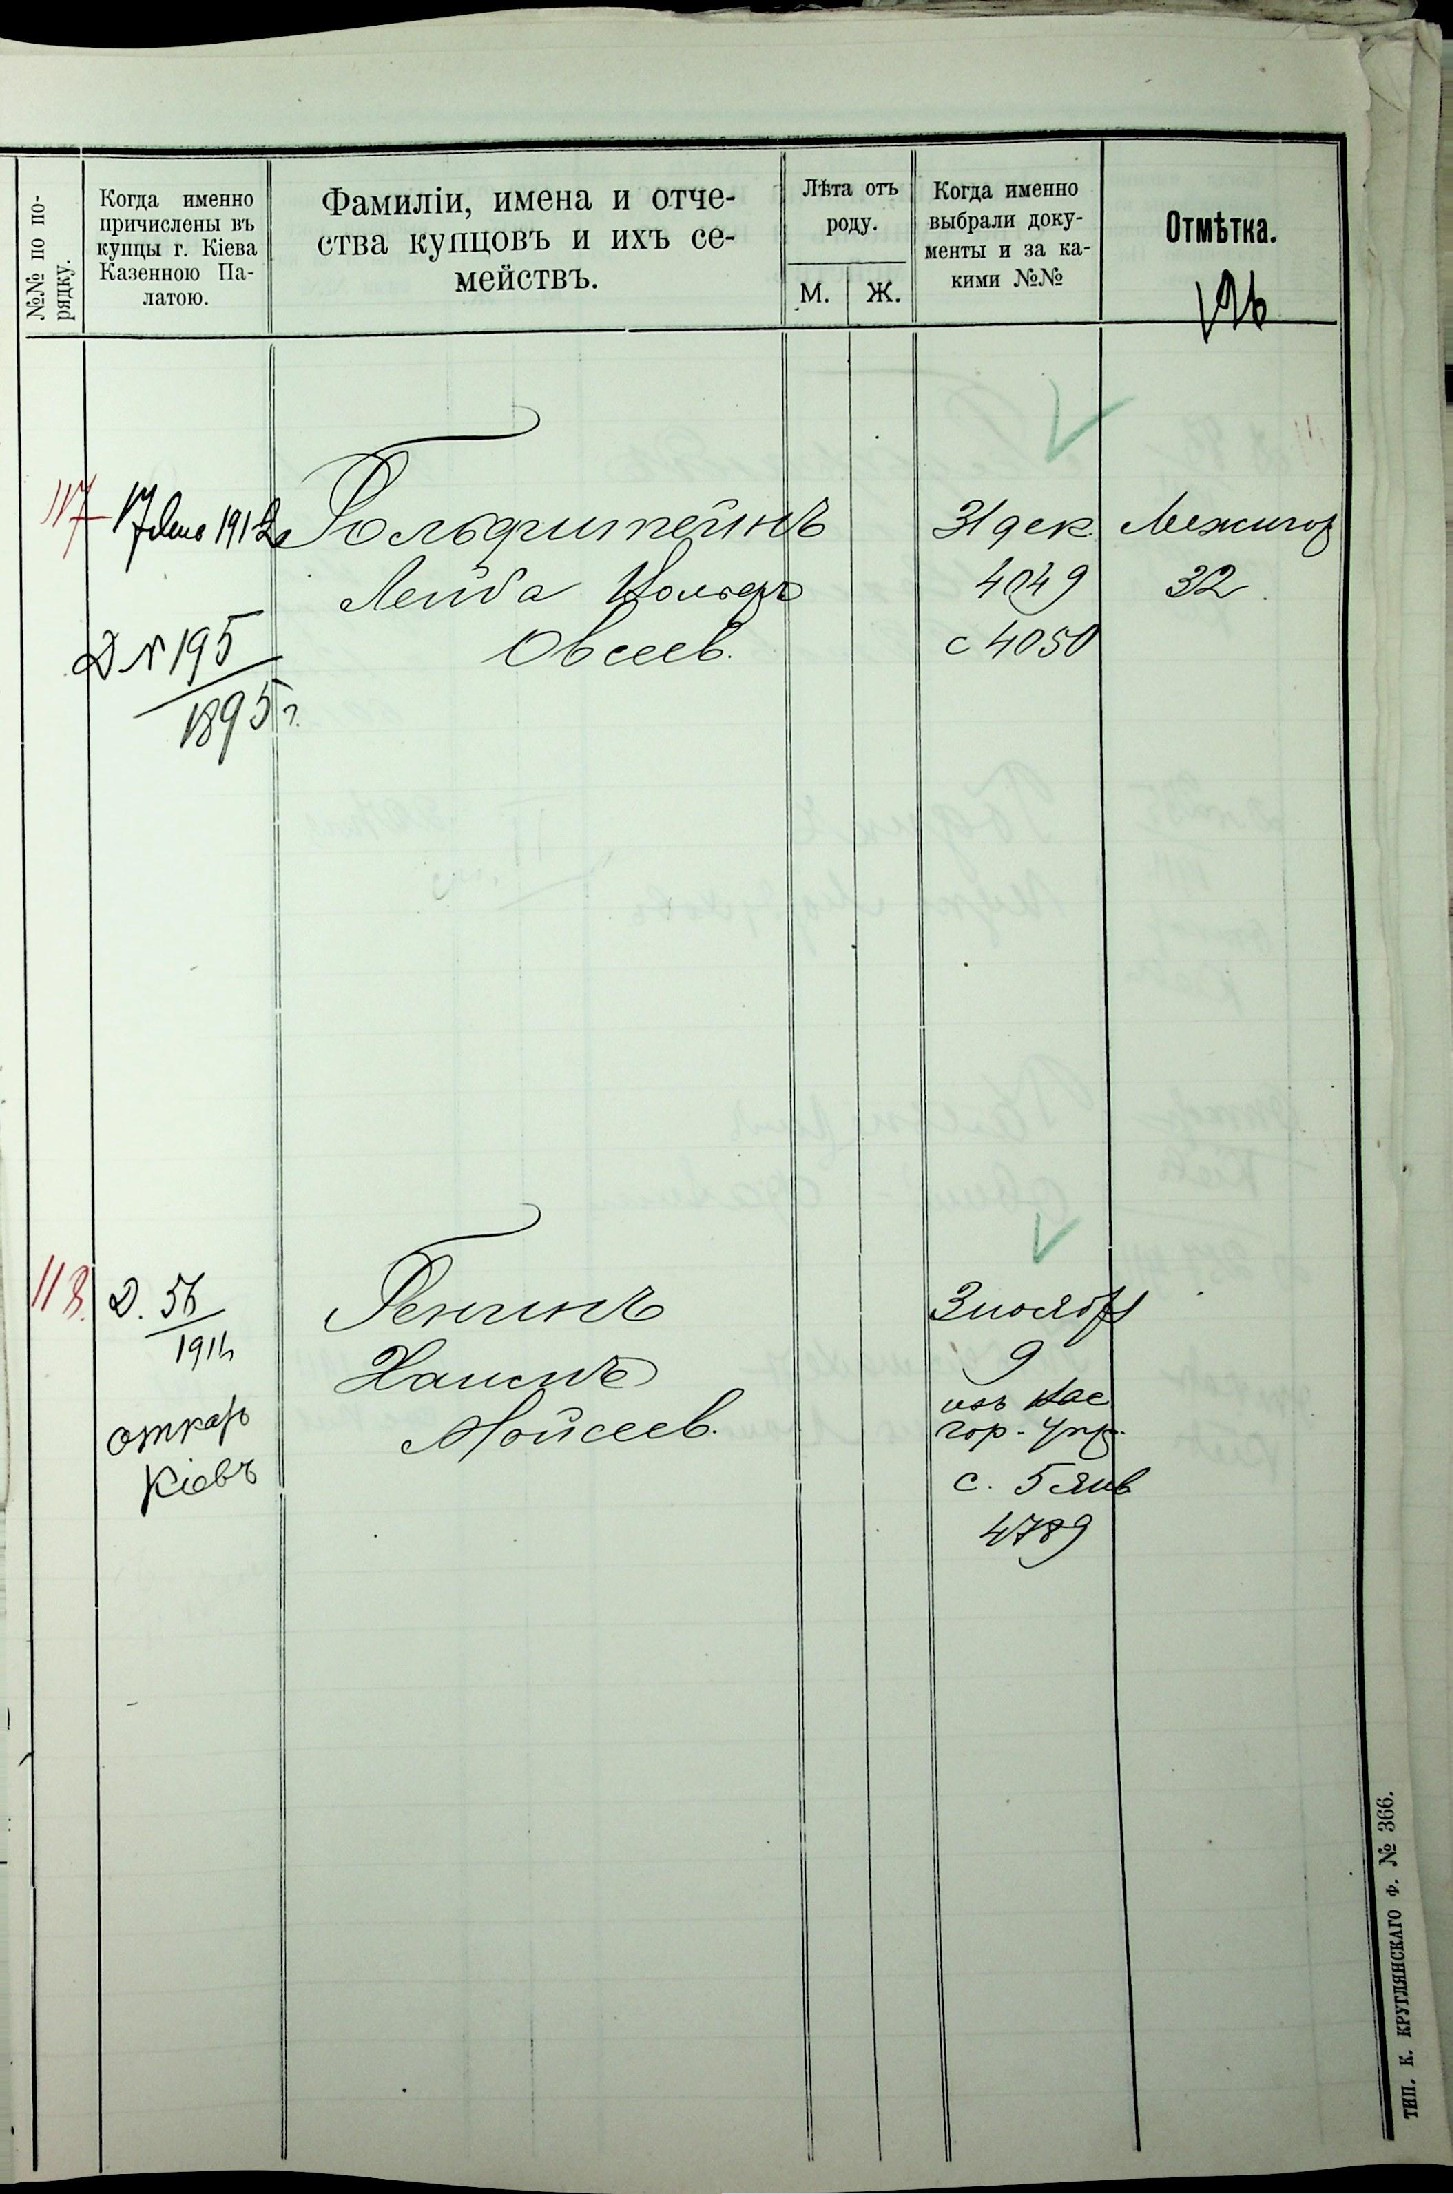 №№ по по-
рядку.
Когда именно
причислены въ
купцы г. Кіева
Казенною Па-
латою.
Фамиліи, имена и отче-
ства купцовъ и ихъ се-
мействъ.
Лѣта отъ
роду.
М. Ж.
Когда именно
выбрали доку-
менты и за ка-
кими №№
Отмѣтка.
117
1912
Гольдштейнъ
Лейба Вольфъ
Овсеев.
31 дек.
4049
с 4050
Межигор
32
Д № 195
1895 г.
118.
Д. 56
1911
откар
Кіевъ
Генинъ
Хаимъ
Мойсеев.
3 ноября
9
изъ Вас
гор. Упр.
с. 5 янв
4789
ТИП. К. КРУГЛЯНСКАГО Ф. № 366.